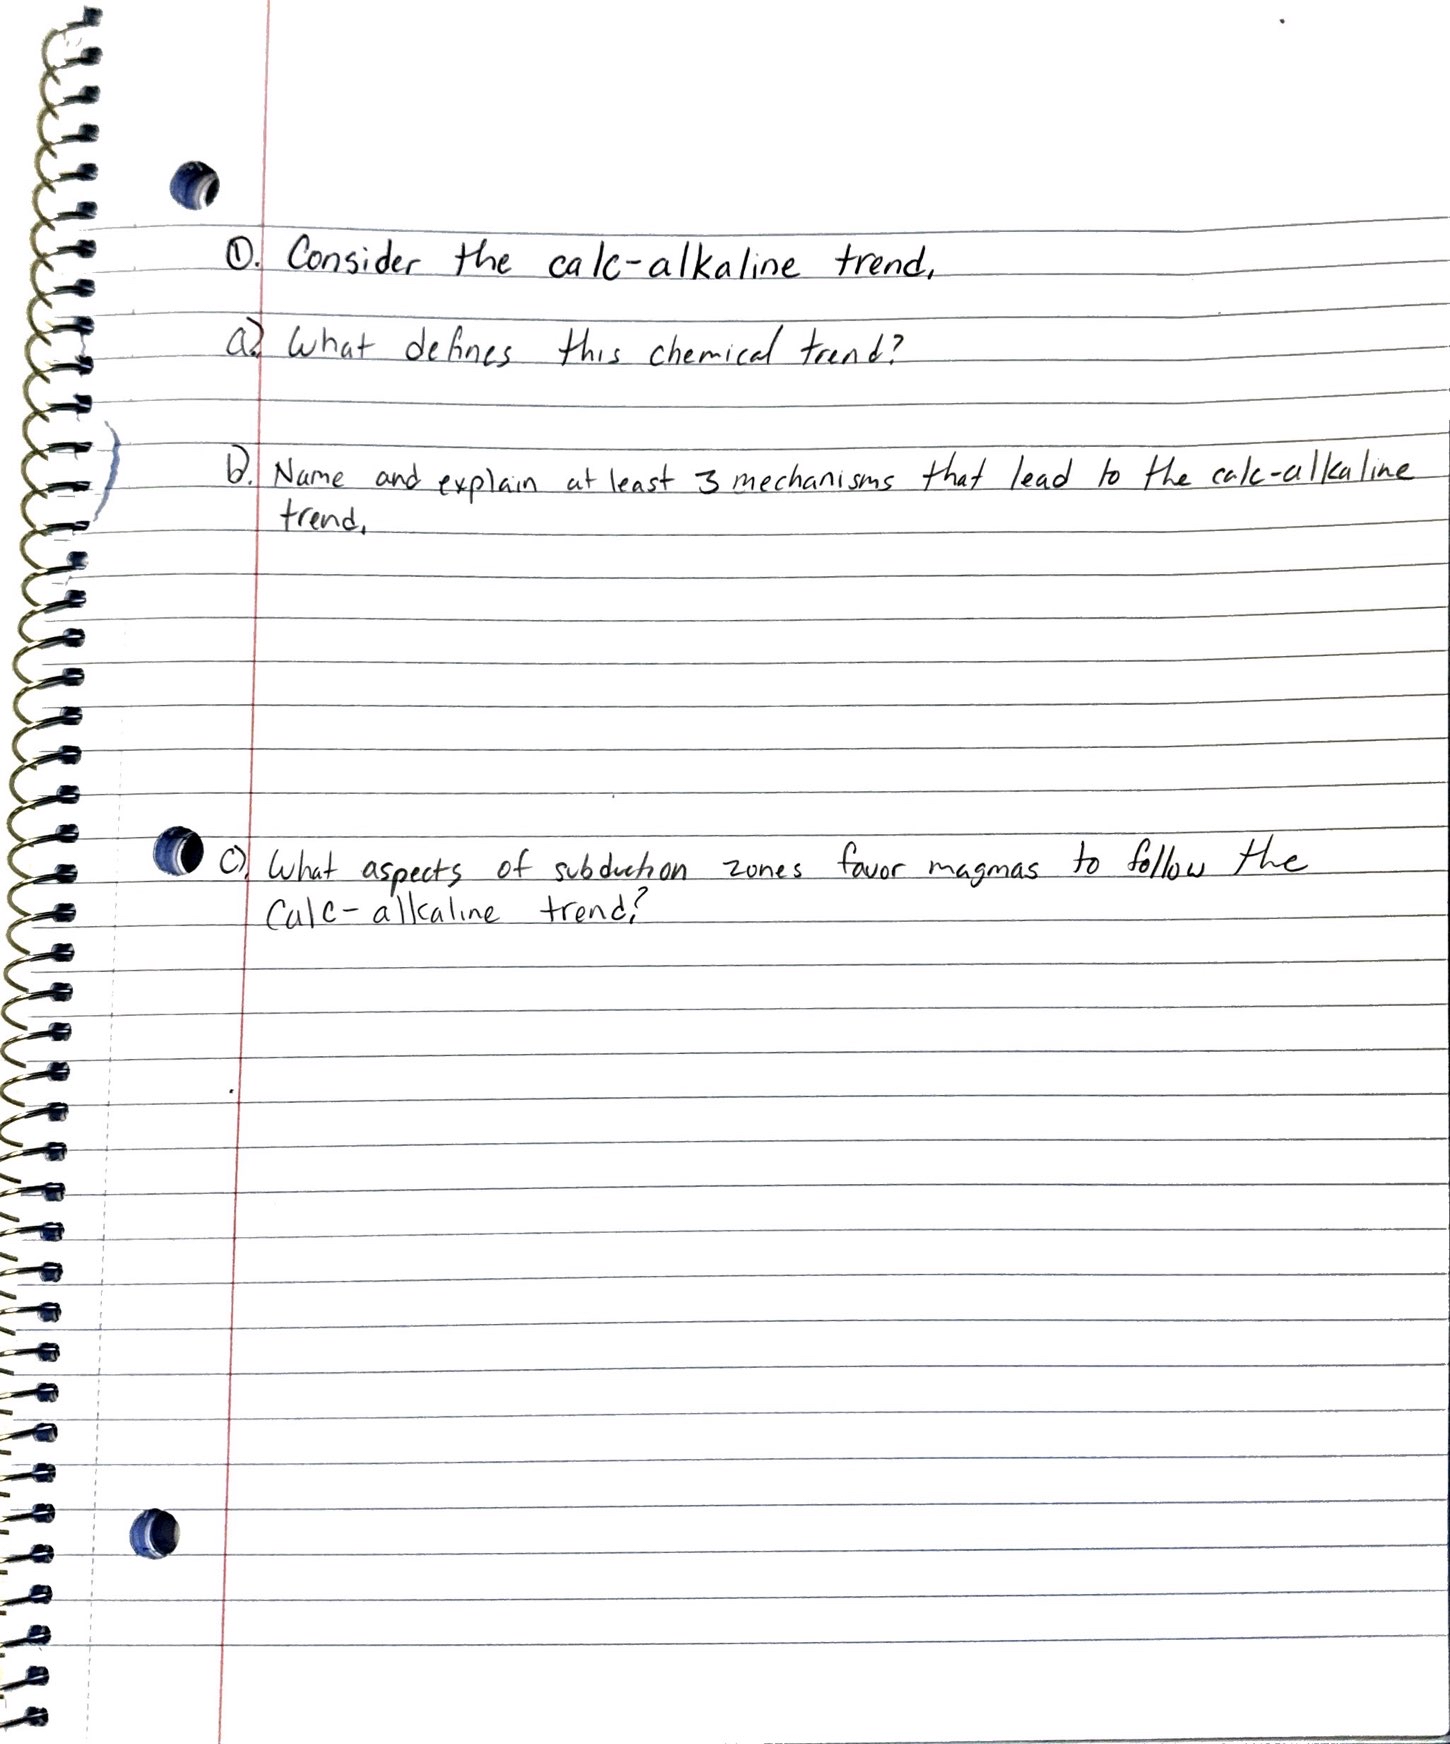 ①. Consider the calc-alkaline trend.
a). What defines this chemical trend?
b). Name and explain at least 3 mechanisms that lead to the calc-alkaline
trend.
c). What aspects of subduction zones favor magmas to follow the
calc-alkaline trend?